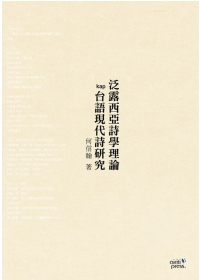 泛露西亞詩學理論
kap
台語現代詩研究
何信翰 著
press.